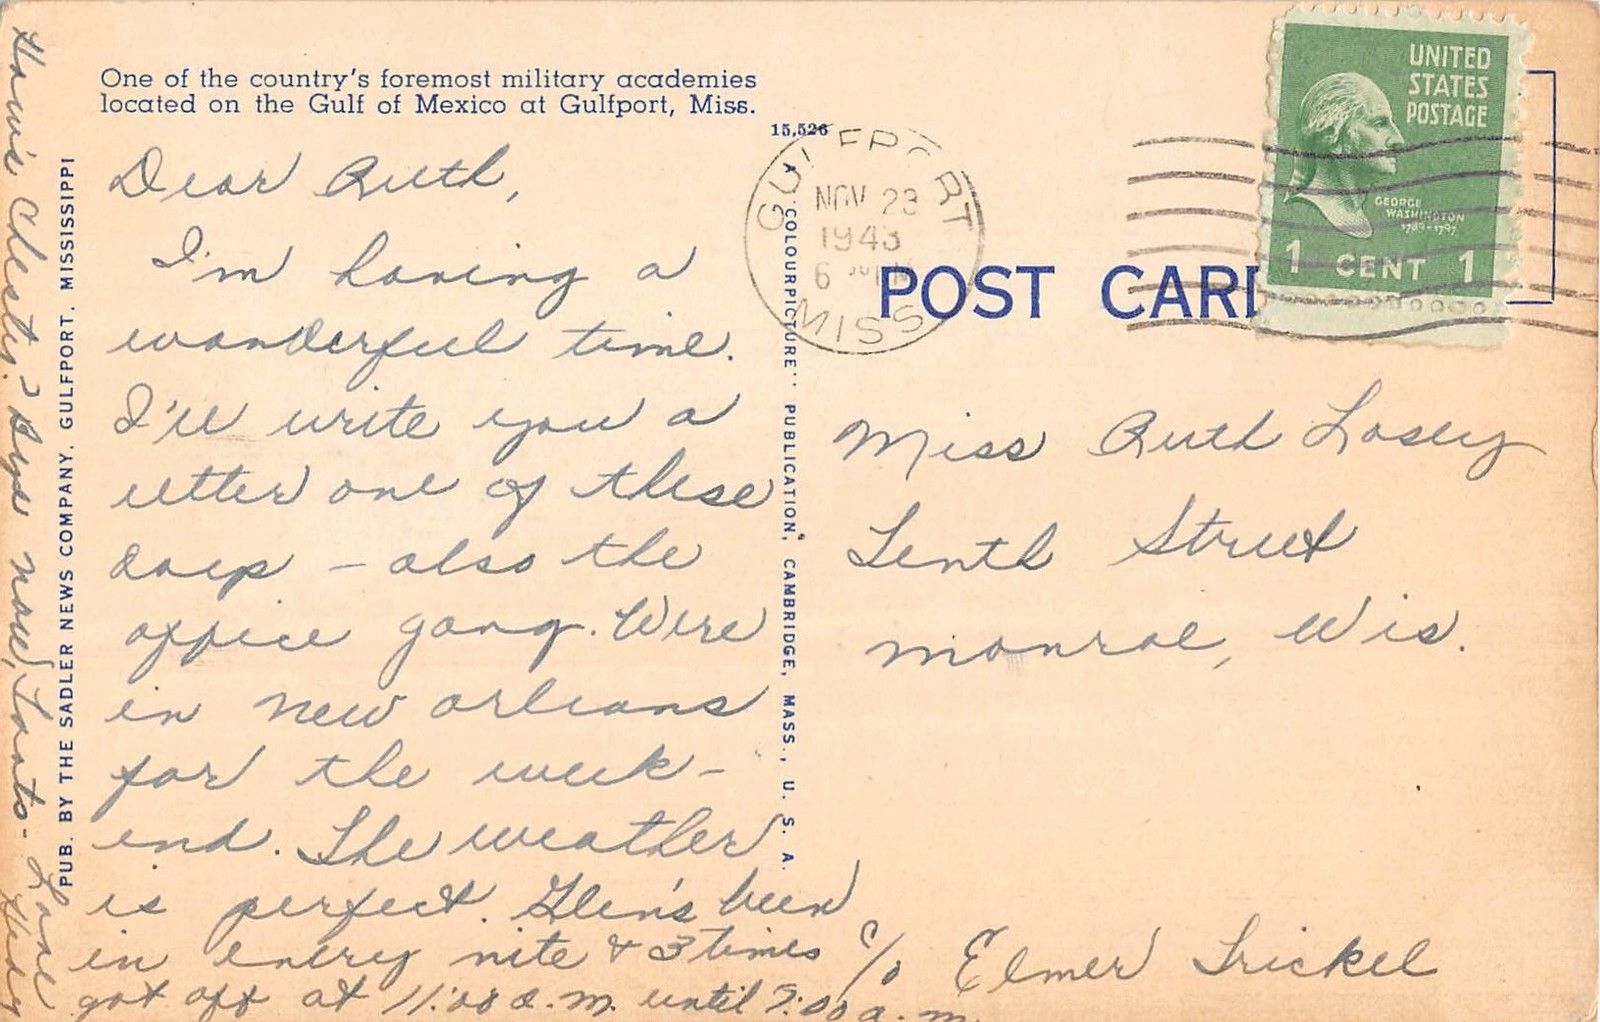 One of the country's foremost military academies
located on the Gulf of Mexico at Gulfport, Miss.
15,526
Dear Ruth,
I'm having a
wonderful time.
I'll write you a
letter one of these
days - also the
office gang. Were
in New Orleans
for the week-
end. The weather
is perfect. Glen's been
in every nite & 3 times
got off at 11:00 a.m. until 7:00 a.m.
How's Chester? Bye now,
Love
PUB. BY THE SADLER NEWS COMPANY, GULFPORT, MISSISSIPPI
A "COLOURPICTURE" PUBLICATION, CAMBRIDGE, MASS., U. S. A.
GULFPORT
NOV 23
1943
6
MISS
POST CARD
UNITED
STATES
POSTAGE
GEORGE
WASHINGTON
1789-1797
1 CENT 1
Miss Ruth Losey
Tenth Street
Monroe, Wis.
c/o Elmer Trickel